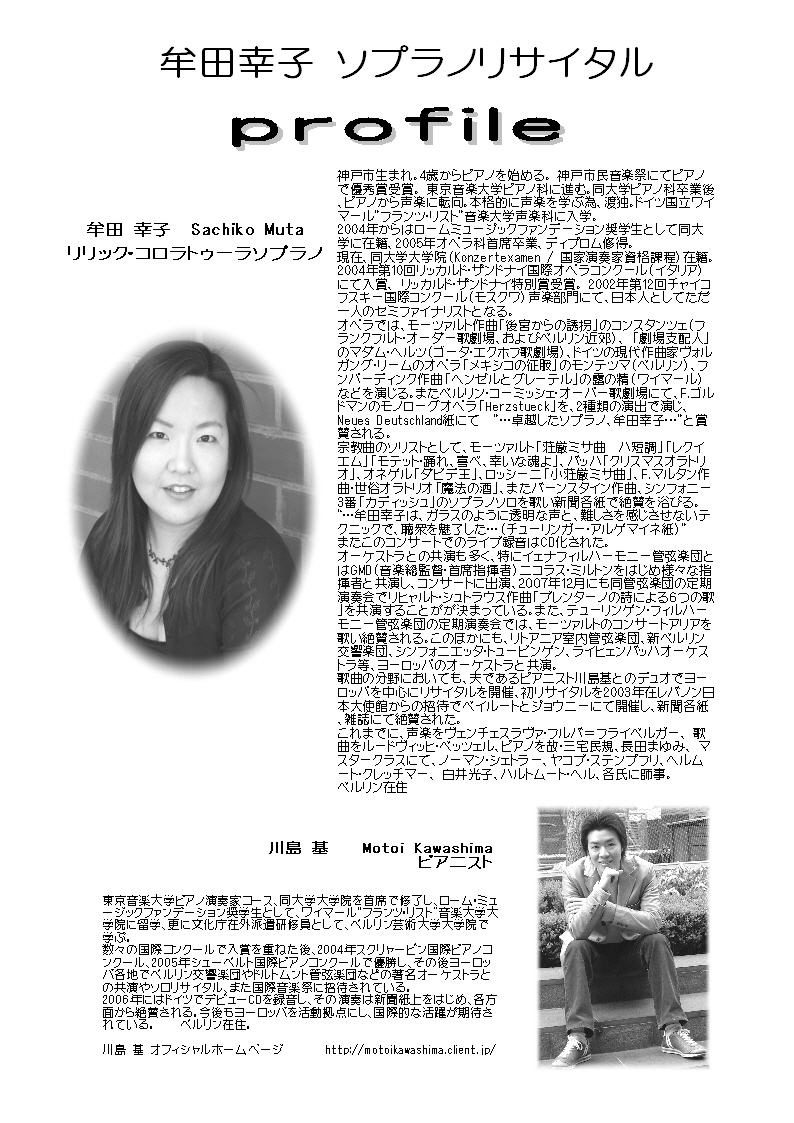 牟田幸子 ソプラノリサイタル
profile
牟田 幸子　Sachiko Muta
リリック・コロラトゥーラソプラノ
神戸市生まれ。4歳からピアノを始める。 神戸市民音楽祭にてピアノ
で優秀賞受賞。 東京音楽大学ピアノ科に進む。同大学ピアノ科卒業後
、ピアノから声楽に転向。本格的に声楽を学ぶ為、渡独。ドイツ国立ワイ
マール“フランツ・リスト”音楽大学声楽科に入学。
2004年からはロームミュージックファンデーション奨学生として同大
学に在籍、2005年オペラ科首席卒業、ディプロム修得。
現在、同大学大学院(Konzertexamen / 国家演奏家資格課程)在籍。
2004年第10回リッカルド・ザンドナイ国際オペラコンクール(イタリア)
にて入賞、 リッカルド・ザンドナイ特別賞受賞。 2002年第12回チャイコ
フスキー国際コンクール(モスクワ)声楽部門にて、日本人としてただ
一人のセミファイナリストとなる。
オペラでは、モーツァルト作曲「後宮からの誘拐」のコンスタンツェ(フ
ランクフルト・オーダー歌劇場、およびベルリン近郊)、 「劇場支配人」
のマダム・ヘルツ(ゴータ・エクホフ歌劇場)、ドイツの現代作曲家ヴォル
ガング・リームのオペラ「メキシコの征服」のモンテツマ(ベルリン)、フ
ンパーディング作曲「ヘンゼルとグレーテル」の露の精(ワイマール)
などを演じる。またベルリン・コーミッシェ・オーパー歌劇場にて、F.ゴル
ドマンのモノローグオペラ「Herzstueck」を、2種類の演出で演じ、
Neues Deutschland紙にて　“…卓越したソプラノ、牟田幸子…”と賞
賛される。
宗教曲のソリストとして、モーツァルト「荘厳ミサ曲　ハ短調」「レクイ
エム」「モテット・踊れ、喜べ、幸いな魂よ」、バッハ「クリスマスオラトリ
オ」、オネゲル「ダビデ王」、ロッシーニ「小荘厳ミサ曲」、F.マルタン作
曲・世俗オラトリオ「魔法の酒」、またバーンスタイン作曲、シンフォニー
3番「カディッシュ」のソプラノソロを歌い新聞各紙で絶賛を浴びる。
“…牟田幸子は、ガラスのように透明な声と、難しさを感じさせないテ
クニックで、聴衆を魅了した…(チューリンガー・アルゲマイネ紙)”
またこのコンサートでのライブ録音はCD化された。
オーケストラとの共演も多く、特にイェナフィルハーモニー管弦楽団と
はGMD(音楽総監督・首席指揮者)ニコラス・ミルトンをはじめ様々な指
揮者と共演し、コンサートに出演、2007年12月にも同管弦楽団の定期
演奏会でリヒャルト・シュトラウス作曲「ブレンターノの詩による6つの歌
」を共演することがが決まっている。また、テューリンゲン・フィルハー
モニー管弦楽団の定期演奏会では、モーツァルトのコンサートアリアを
歌い絶賛される。このほかにも、リトアニア室内管弦楽団、新ベルリン
交響楽団、シンフォニエッタ・トュービンゲン、ライヒェンバッハオーケス
トラ等、ヨーロッパのオーケストラと共演。
歌曲の分野においても、夫であるピアニスト川島基とのデュオでヨー
ロッパを中心にリサイタルを開催、初リサイタルを2003年在レバノン日
本大使館からの招待でベイルートとジョウニーにて開催し、新聞各紙
、雑誌にて絶賛された。
これまでに、声楽をヴェンチェスラヴァ・フルバ＝フライベルガー、 歌
曲をルードヴィッヒ・ベッツェル、ピアノを故・三宅民規、長田まゆみ、 マ
スタークラスにて、ノーマン・シェトラー、ヤコブ・ステンプフリ、ヘルム
ート・クレッチマー、 白井光子、ハルトムート・ヘル、各氏に師事。
ベルリン在住
川島 基　　Motoi Kawashima
ピアニスト
東京音楽大学ピアノ演奏家コース、同大学大学院を首席で修了し、ローム・ミュ
ージックファンデーション奨学生として、ワイマール“フランツ・リスト”音楽大学大
学院に留学、更に文化庁在外派遣研修員として、ベルリン芸術大学大学院で
学ぶ。
数々の国際コンクールで入賞を重ねた後、2004年スクリャービン国際ピアノコ
ンクール、2005年シューベルト国際ピアノコンクールで優勝し、その後ヨーロッ
パ各地でベルリン交響楽団やドルトムント管弦楽団などの著名オーケストラと
の共演やソロリサイタル、また国際音楽祭に招待されている。
2006年にはドイツでデビューCDを録音し、その演奏は新聞紙上をはじめ、各方
面から絶賛される。今後もヨーロッパを活動拠点にし、国際的な活躍が期待さ
れている。　　ベルリン在住。
川島 基 オフィシャルホームページ　　http://motoikawashima.client.jp/